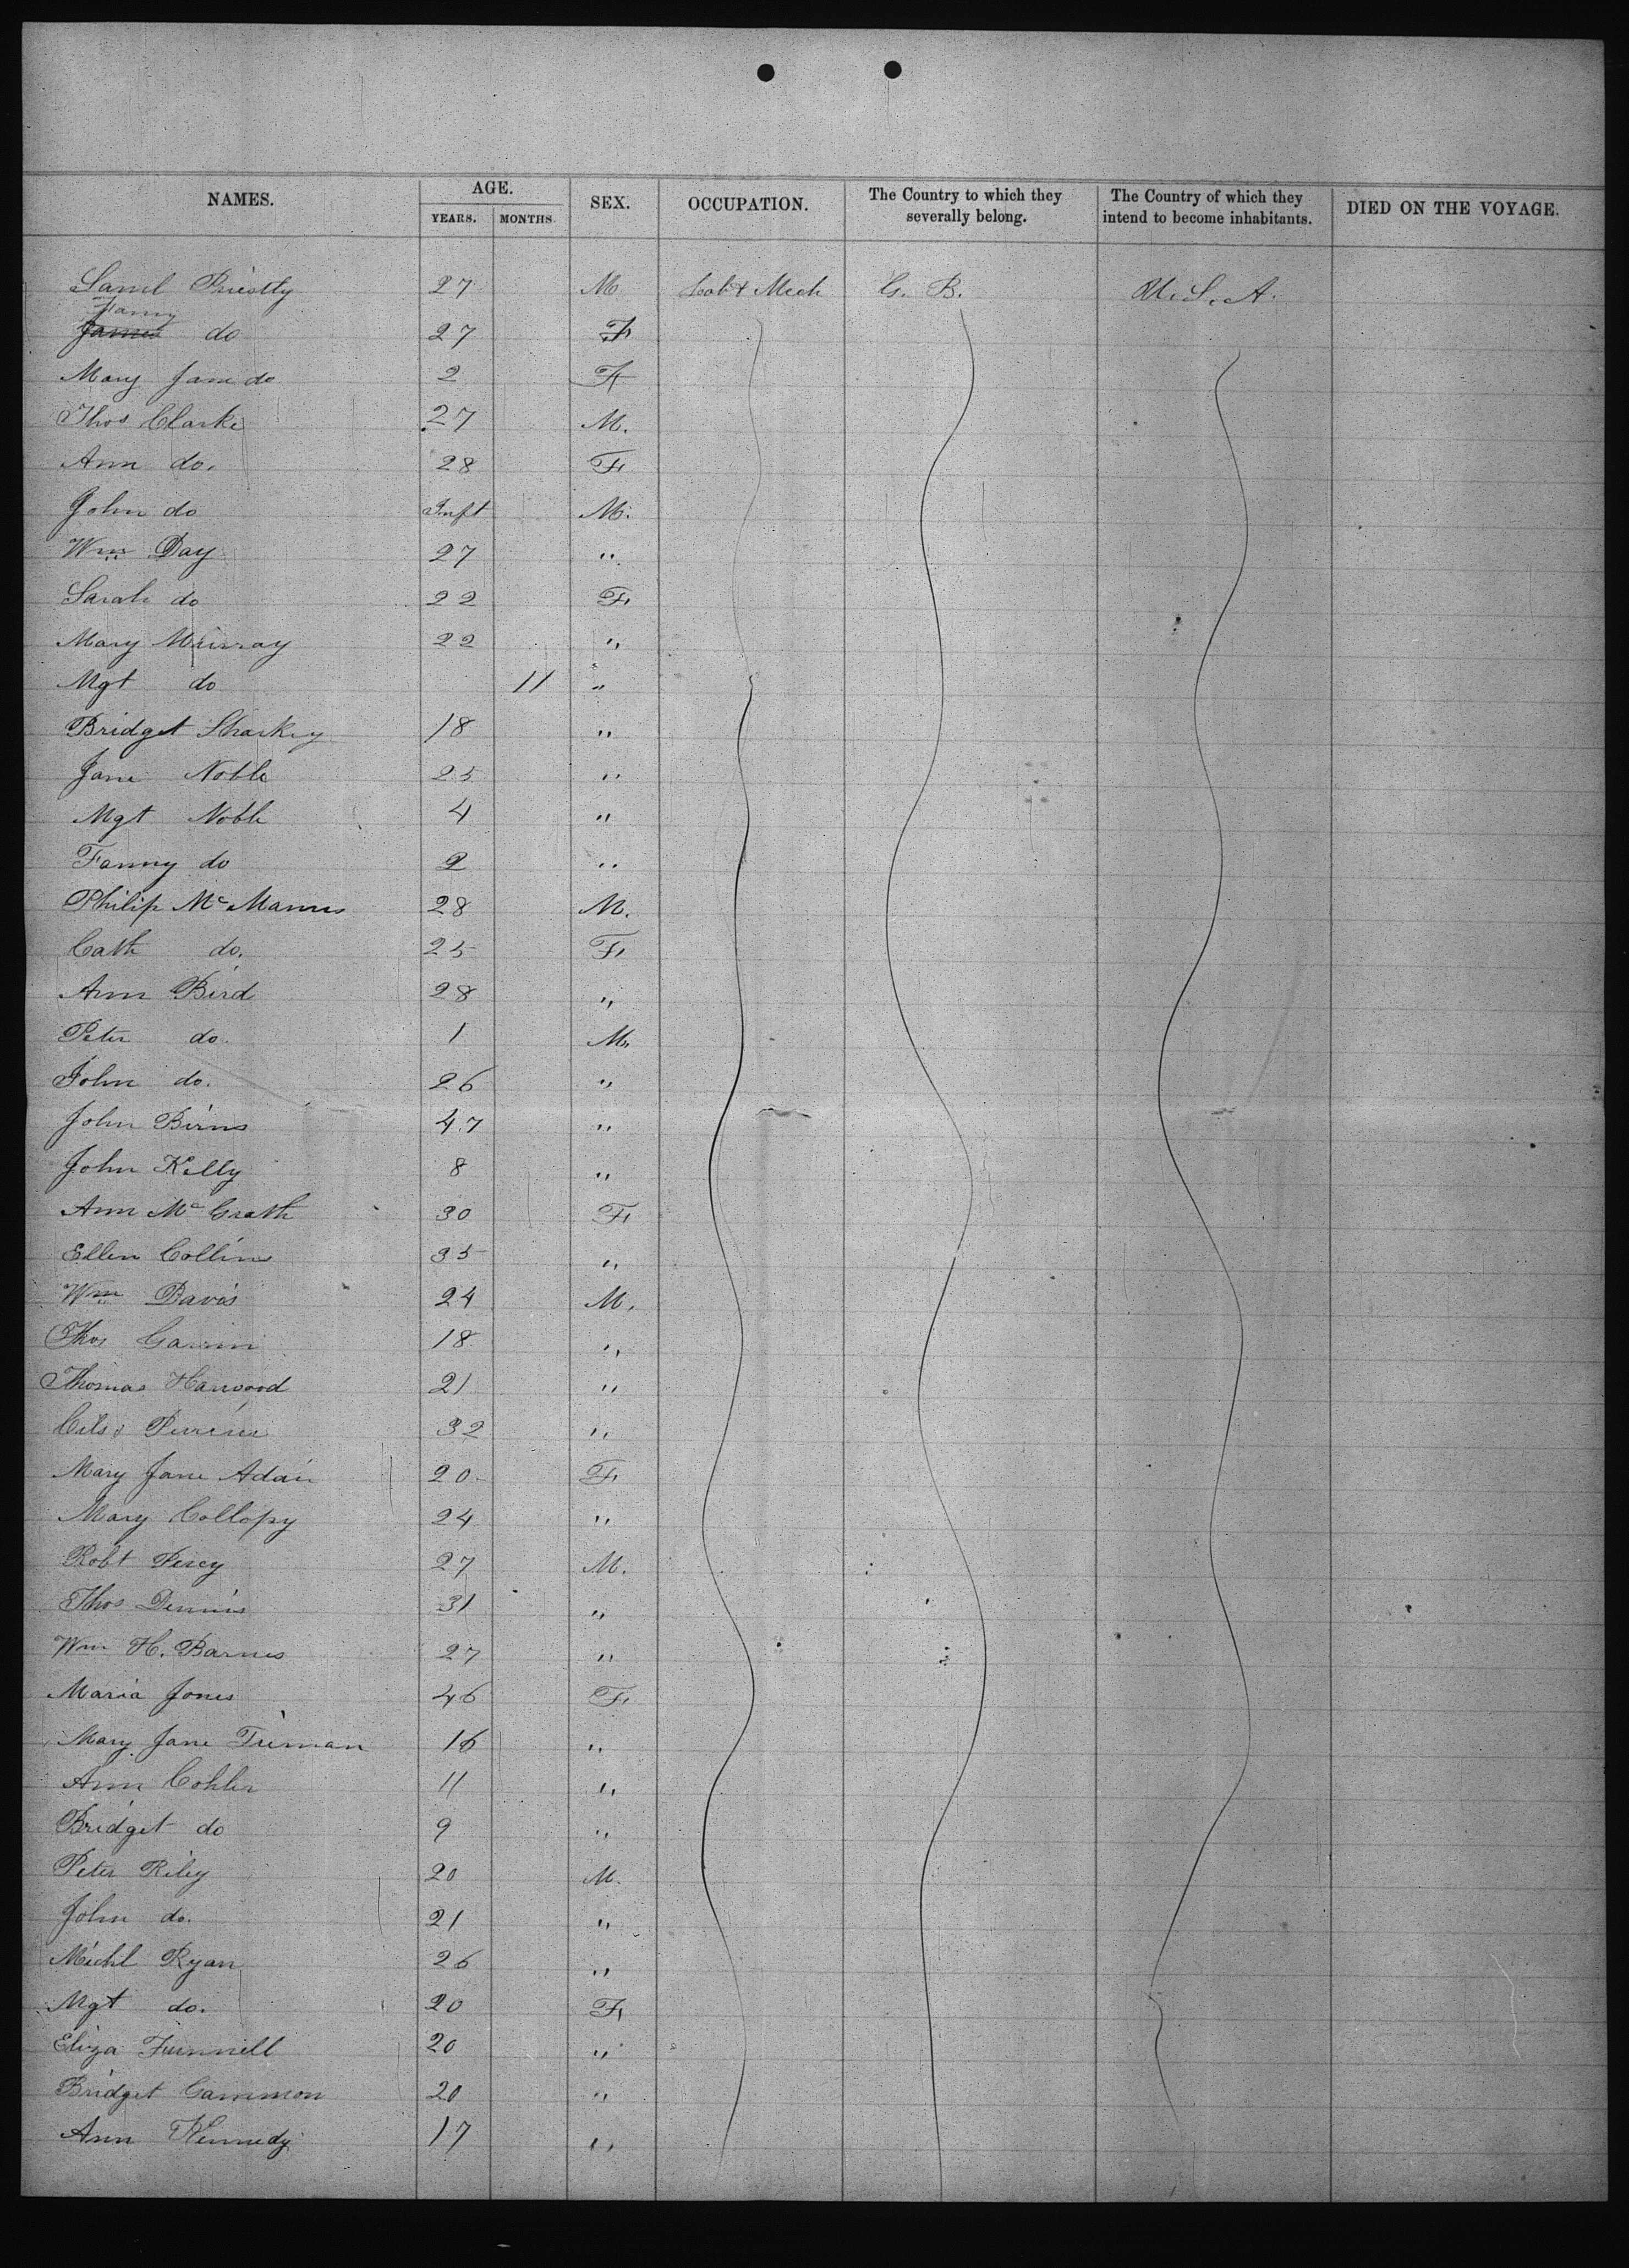 NAMES. AGE. YEARS. MONTHS. SEX. OCCUPATION. The Country to which they severally belong. The Country of which they intend to become inhabitants. DIED ON THE VOYAGE.
Saml Priestly 27 M Lab & Mech G. B. U. S. A.
Fanny
James do 27 F
Mary Jane do 2 F
Thos Clarke 27 M.
Ann do. 28 F
John do Inft M.
Wm Day 27 "
Sarah do 22 F
Mary Murray 22 "
Mgt do 11 "
Bridget Sharkey 18 "
Jane Noble 25 "
Mgt Noble 4 "
Fanny do 2 "
Philip McManus 28 M.
Cath do. 25 F
Ann Bird 28 "
Peter do. 1 M.
John do. 26 "
John Birns 47 "
John Kelly 8 "
Ann McGrath 30 F
Ellen Collins 35 "
Wm Davis 24 M.
Thos 18 "
Thomas Harwood 21 "
32 "
Mary Jane Adair 20 F
Mary Collopy 24 "
Robt Percy 27 M.
Thos Dennis 31 "
Wm H. Barnes 27 "
Maria Jones 46 F
Mary Jane 16 "
Ann Cohler 11 "
Bridget do 9 "
Peter Riley 20 M.
John do. 21 "
Michl Ryan 26 "
Mgt do. 20 F
Eliza Funnell 20 "
Bridget Cammon 20 "
Ann Kennedy 17 "